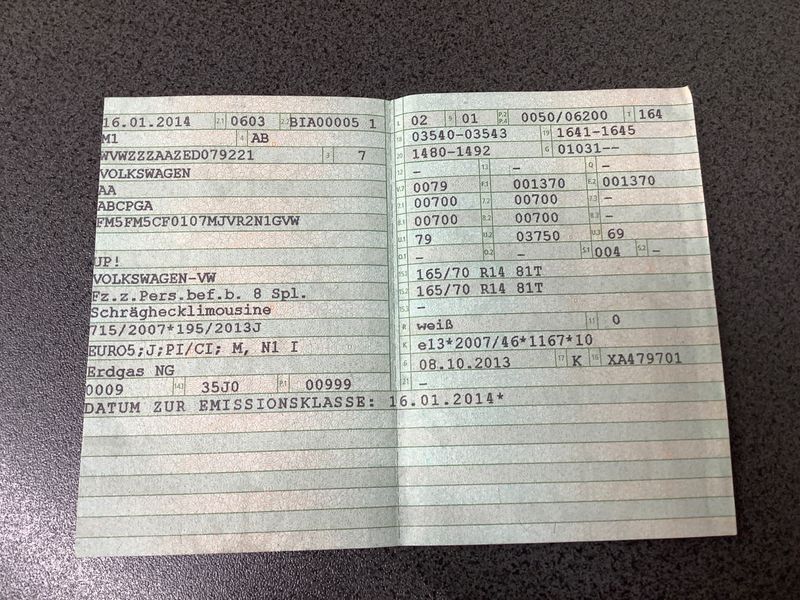 16.01.2014 2.1 0603 2.2 BIA00005 1
M1 4 AB
WVWZZZAAZED079221 3 7
VOLKSWAGEN
AA
ABCPGA
FM5FM5CF0107MJVR2N1GVW
UP!
VOLKSWAGEN-VW
Fz.z.Pers.bef.b. 8 Spl.
Schräghecklimousine
715/2007*195/2013J
EURO5;J;PI/CI; M, N1 I
Erdgas NG
0009 14.1 35J0 P.1 00999
L 02 9 01 P.2 P.4 0050/06200 T 164
18 03540-03543 19 1641-1645
20 1480-1492 G 01031--
12 - 13 - Q -
V.7 0079 F.1 001370 F.2 001370
7.1 00700 7.2 00700 7.3 -
8.1 00700 8.2 00700 8.3 -
U.1 79 U.2 03750 U.3 69
O.1 - O.2 - S.1 004 S.2 -
15.1 165/70 R14 81T
15.2 165/70 R14 81T
15.3 -
R weiß 11 0
K e13*2007/46*1167*10
6 08.10.2013 17 K 16 XA479701
21 -
DATUM ZUR EMISSIONSKLASSE: 16.01.2014*